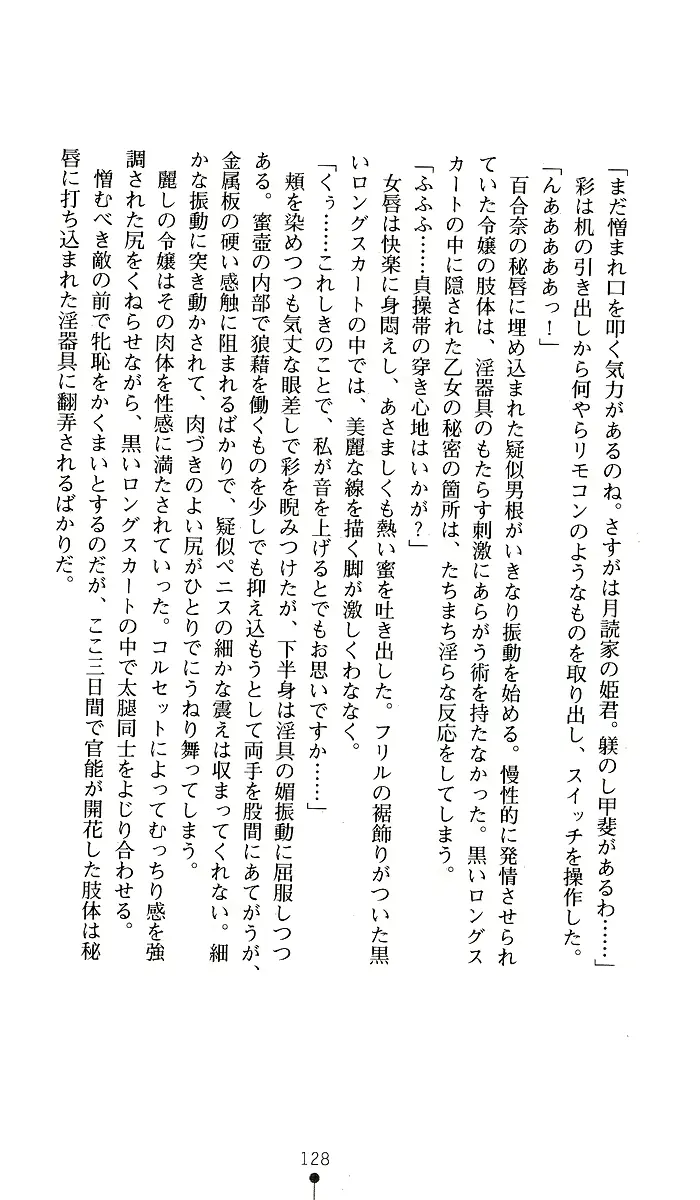 「まだ憎まれ口を叩く気力があるのね。さすがは月読家の姫君。躾のし甲斐があるわ……」
　彩は机の引き出しから何やらリモコンのようなものを取り出し、スイッチを操作した。
「んあああああっ！」
　百合奈の秘唇に埋め込まれた疑似男根がいきなり振動を始める。慢性的に発情させられ
ていた令嬢の肢体は、淫器具のもたらす刺激にあらがう術を持たなかった。黒いロングス
カートの中に隠された乙女の秘密の箇所は、たちまち淫らな反応をしてしまう。
「ふふふ……貞操帯の穿き心地はいかが？」
　女唇は快楽に身悶えし、あさましくも熱い蜜を吐き出した。フリルの裾飾りがついた黒
いロングスカートの中では、美麗な線を描く脚が激しくわななく。
「くぅ……これしきのことで、私が音を上げるとでもお思いですか……」
　頬を染めつつも気丈な眼差しで彩を睨みつけたが、下半身は淫具の媚振動に屈服しつつ
ある。蜜壺の内部で狼藉を働くものを少しでも抑え込もうとして両手を股間にあてがうが、
金属板の硬い感触に阻まれるばかりで、疑似ペニスの細かな震えは収まってくれない。細
かな振動に突き動かされて、肉づきのよい尻がひとりでにうねり舞ってしまう。
　麗しの令嬢はその肉体を性感に満たされていった。コルセットによってむっちり感を強
調された尻をくねらせながら、黒いロングスカートの中で太腿同士をよじり合わせる。
　憎むべき敵の前で牝恥をかくまいとするのだが、ここ三日間で官能が開花した肢体は秘
唇に打ち込まれた淫器具に翻弄されるばかりだ。
128